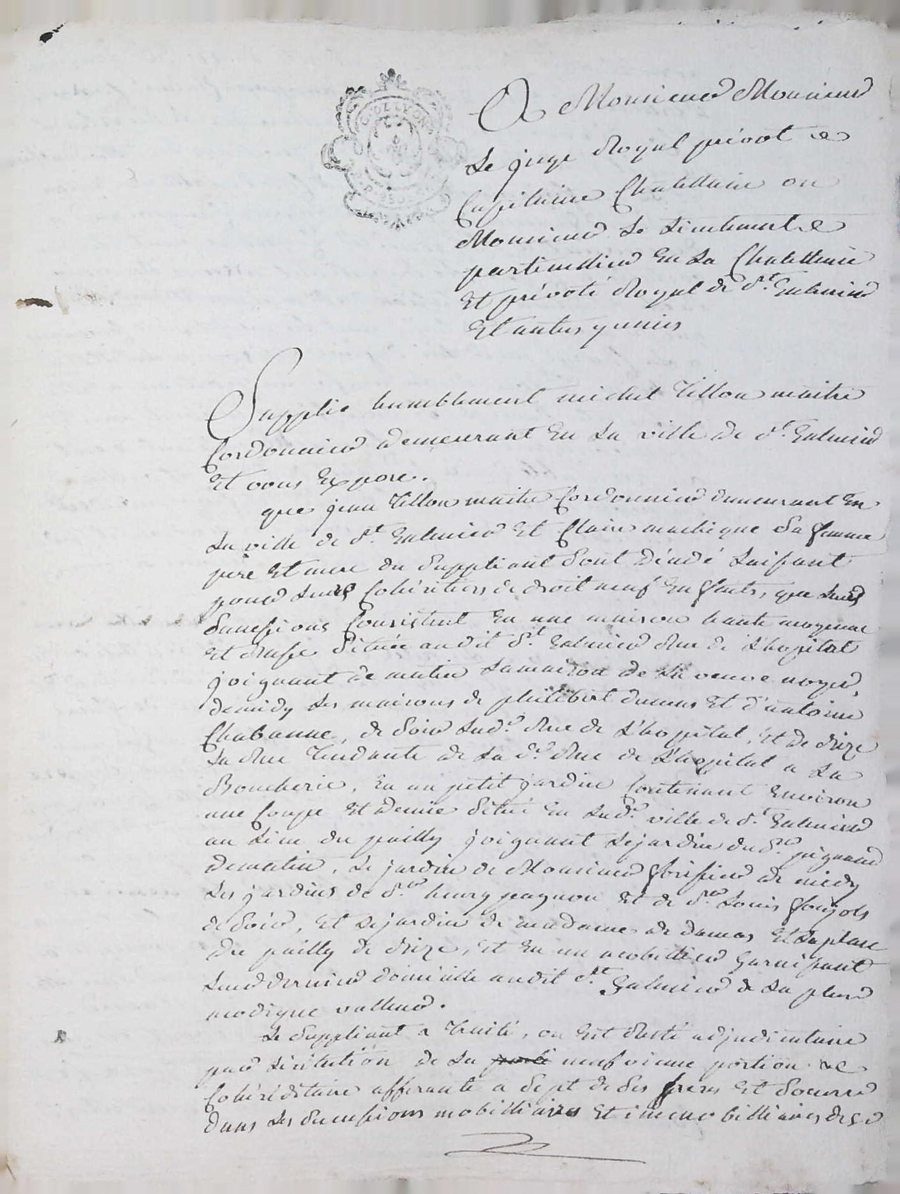 A Monsieur Monsieur
Le juge Royal prévot &
Capitaine Chatellain ou
Monsieur Le Lieutenant &
particullier En La Chatellenie
Et prévoté Royal de St. Galmier
Et autres y unies
Supplie humblement michel Tillon maitre
Cordonnier demeurant En La ville de St. Galmier
Et vous Expose.
que jean Tillon maitre Cordonnier demeurant En
La ville de St. Galmier Et Claire Sa femme
père Et mere du Suppliant Sont décédé Laissant
pour Leurs Cohéritiers de droit neuf Enfants, que Leurs
Successions Consistent En une maison haute moyenne
Et Basse Située audit St. Galmier Rue de L'hopital
joignant de matin La maison de La veuve noyer,
de midy Les maisons de philibert dumas Et d'antoine
Chabanne, de Soir Lade. Rue de L'hopital, Et de Bize
La Rue Tendante de La de. Rue de L'hopital a La
Boucherie, En un petit jardin Contenant Environ
une Coupe Et demie Situé En Lade. ville de St. Galmier
au Lieu du pailly joignant Le jardin dud.
de matin, Le jardin de Monsieur de midy
Les jardins de Sr. henry pagnon Et de Sr. Louis
de Soir, Et Le jardin de madame de damas Et La place
du pailly de Bize, Et En un mobillier Garnissant
Leur dernier domicille audit St. Galmier de La plus
modique valleur.
Le Suppliant a Traité, ou Est Resté adjudicataire
par Licitation de La neufvieme portion &
Cohéréditaire afferante a Sept de Ses freres Et Soeurs
dans Les Successions mobilliaires Et immobilliaires de